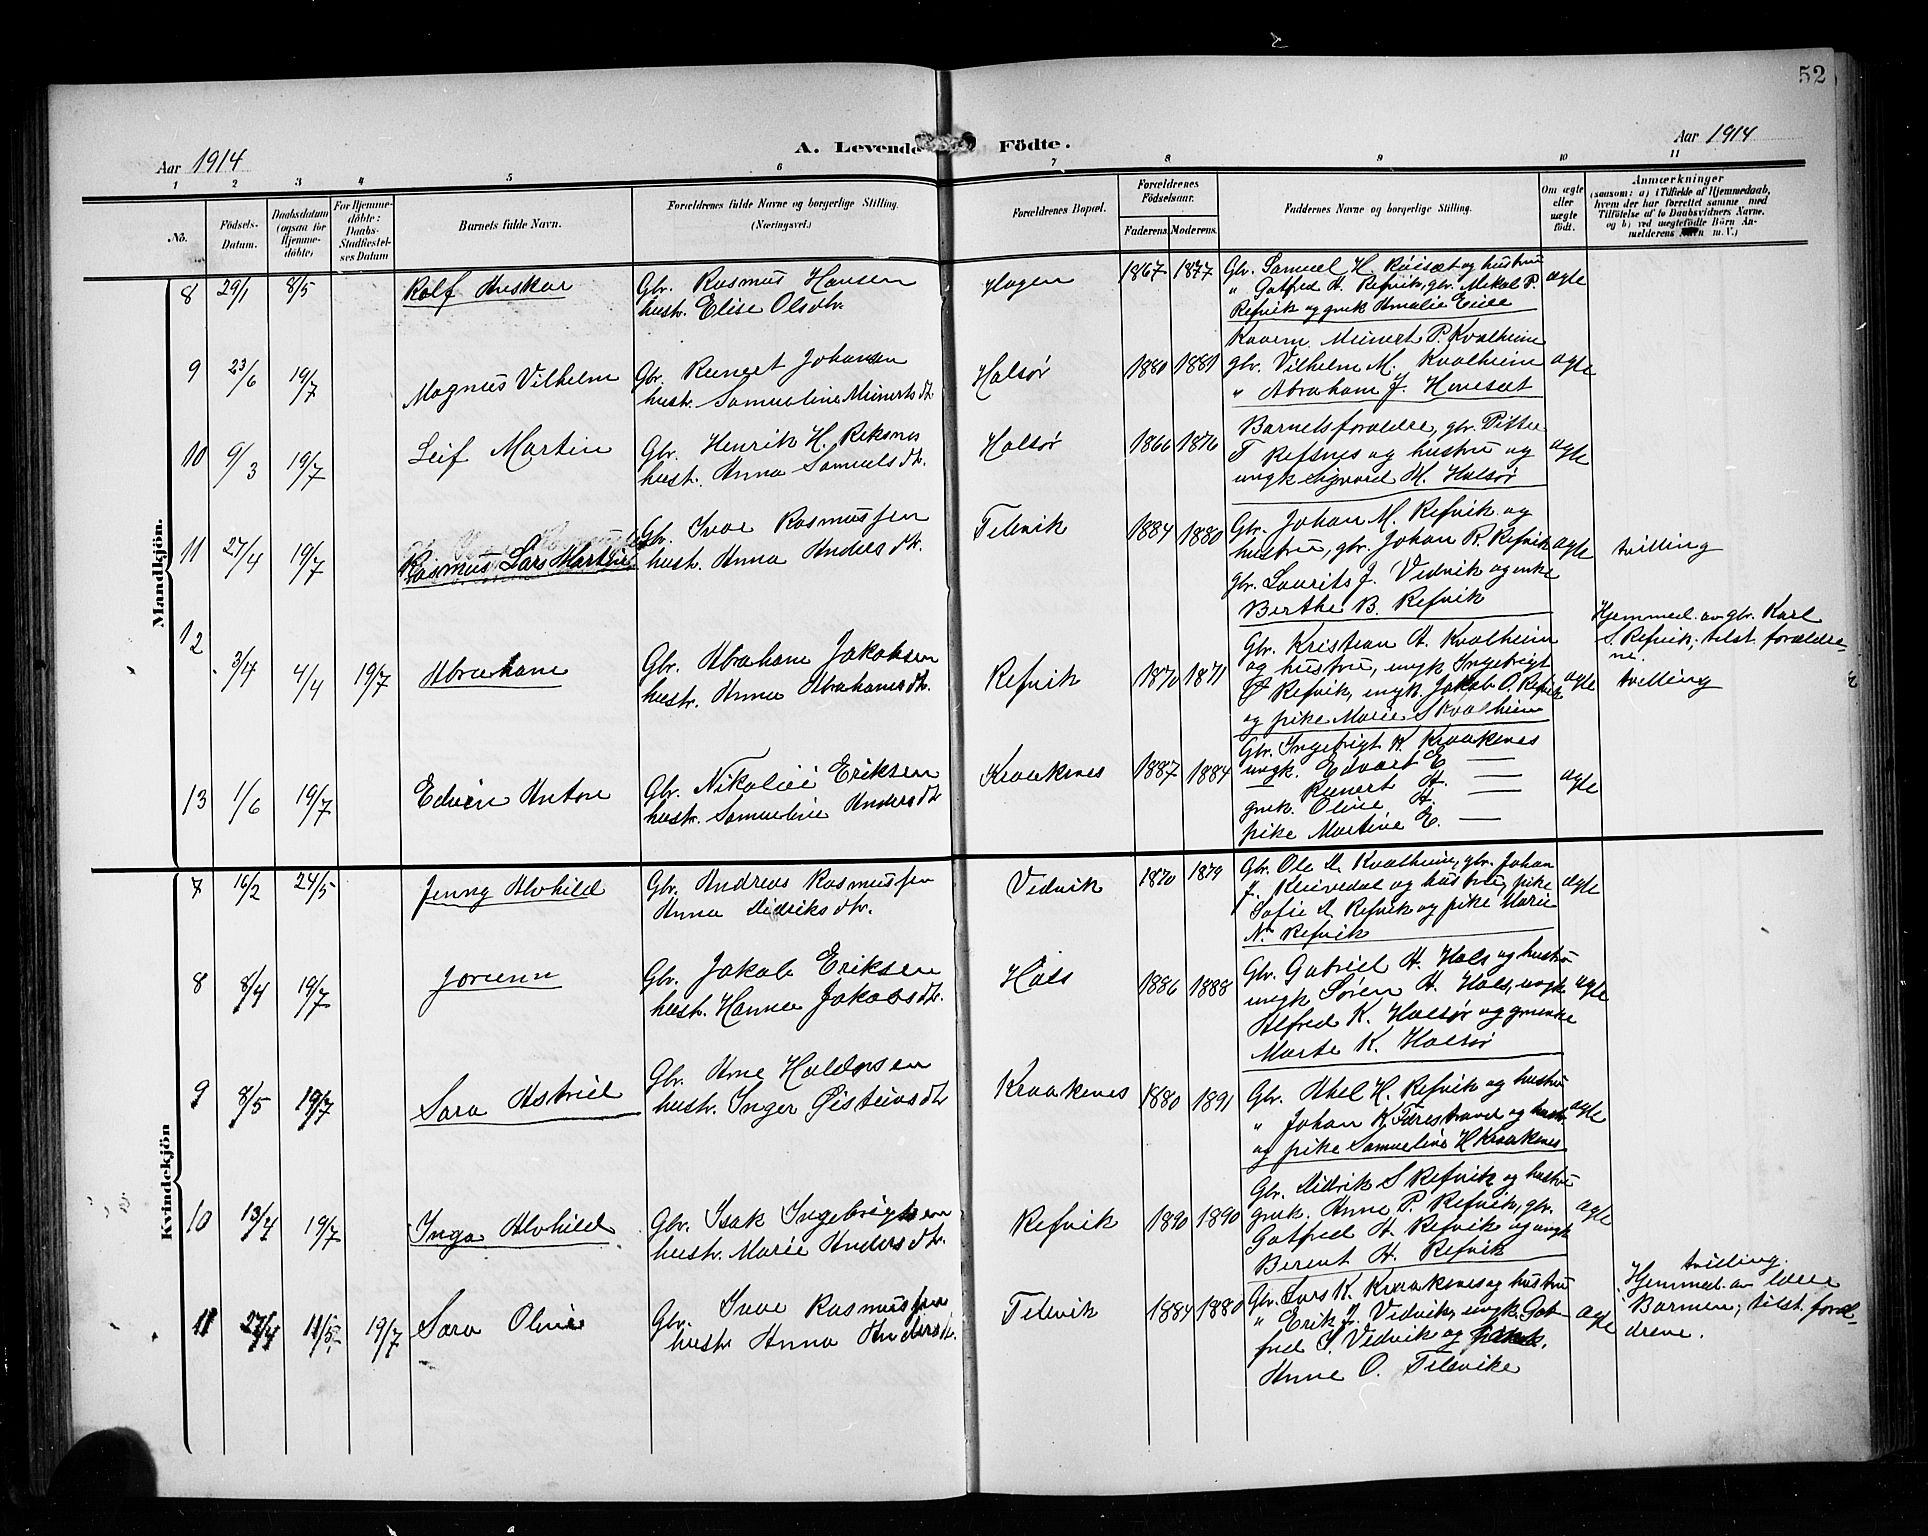 52
Aar 1914
A. Levende Födte.
Aar 1914
1 2 3 4 5 6 7 8 9 10 11
No.
Födsels-Datum.
Daabsdatum (ogsaa for Hjemme-döbte)
For Hjemme-döbte: Daabs-Stadfæstel-ses Datum
Barnets fulde Navn.
Forældrenes fulde Navne og borgerlige Stilling.
(Næringsvei.)
Forældrenes Bopæl.
Forældrenes Födselsaar.
Faderens. Moderens.
Faddernes Navne og borgerlige Stilling.
Om ægte eller uægte födt.
Anmærkninger
(saasom: a) i Tilfælde af Hjemmedaab,
hvem der har forrettet samme, med
Tilföielse af to Daabsvidners Navne,
og b) ved uægtefödte Börn An-
melderens Navn m. V.)
Mandkjön.
8 29/1 8/5 Rolf Anskar
Gbr. Rasmus Hansen
hustr. Elise Olsdtr.
Hagen 1867 1877
Gbr. Samuel H. Röisæt og hustru
" Gotfred A. Refvik, gbr. Mikal P.
Refvik og gmk Amalie
ægte
9 23/6 19/7 Magnus Vilhelm
Gbr. Runert Johansen
hustr. Samueline Meinertsdtr.
Halsør 1880 1881
Kaarm. Meinert P. Kvalheim
gbr. Vilhelm M. Kvalheim
" Abraham J. Hovesæt
ægte
10 9/3 19/7 Leif Martin
Gbr. Henrik H. Reksnes
hustr. Anna Samuelsdtr.
Halsør 1866 1876
Barnets forældre, gbr. Pitter
T Refsnes og hustru og
ungk Sigvard M. Halsør
ægte
11 27/4 19/7 Rasmus Lars Martin
Gbr. Ivar Rasmussen
hustr. Anna Andersdtr.
Televik 1884 1880
Gbr. Johan M. Refvik og
hustru, gbr. Johan R. Refvik
gbr. Laurits J. Vedvik og enke
Berthe B. Refvik
ægte
tvilling
12 3/4 4/4 19/7 Abraham
Gbr. Abraham Jakobsen
hustr. Anna Abrahamsdtr.
Refvik 1870 1871
Gbr. Kristian A. Kvalheim
og hustru, ungk Ingebrigt
Refvik, ungk. Jakob O. Refvik
og pike Marie S Kvalheim
ægte
Hjemmed. av gbr. Karl
S. Refvik; tilst. forældre-
ne.
tvilling
13 1/6 19/7 Edvin Anton
Gbr. Nikolai Eriksen
hustr. Samueline Andersdtr
Kraakenes 1887 1884
Gbr. Ingebrigt K. Kraakenes
ungk. Edvart E —
— Runert A. —
gmk. Oline A. —
pike Martine E. —
ægte
Kvindekjön
7 16/2 24/5 Jenny Alvhild
Gbr. Andreas Rasmussen
Anna Didriksdtr.
Vedvik 1870 1879
Gbr. Ole D. Kvalheim, gbr. Johan
J. Kleivedal og hustru, pike
Sofie D. Refvik og pike Marie
N. Refvik
ægte
8 8/4 19/7 Jorunn
Gbr. Jakob Eriksen
hustr. Hanna Jakobsdtr.
Hals 1886 1888
Gbr. Gabriel A. Hals og hustru
ungk Søren A. Hals, ungk
Alfred K. Halsør og gmenke
Marte K. Halsør
ægte
9 8/5 19/7 Sara Astrid
Gbr. Arne Haldorsen
hustr. Inger Øisteinsdtr
Kraakenes 1880 1891
Gbr. Abel H. Refvik og hustru
" Johan K. Færestrand og hustr
og pike Samueline H Kraakenes
ægte
10 13/4 19/7 Inga Alvhild
Gbr. Isak Ingebrigtsen
hustr. Marie Andersdtr.
Refvik 1890 1890
Gbr. Didrik S Refvik og hustru
gmk. Anne P. Refvik, gbr.
Gotfred A. Refvik og ungk
Berent A. Refvik
ægte
11 27/4 11/5 19/7 Sara Oline
Gbr. Ivar Rasmussen
hustr Anna Andersdtr.
Televik 1884 1880
Gbr. Lars K. Kraakenes og hustru
" Erik J. Vedvik, ungk. Got-
fred S. Vedvik og
Anne O. Televike
ægte
tvilling.
Hjemmed. av
Barmen; tilst. foræl-
drene.